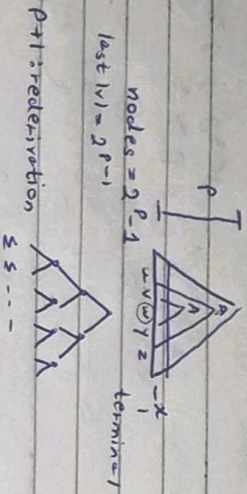 A
P
A
u v w y z - x
1
terminal
nodes = 2^p - 1
last lvl = 2^p-1
p+1 : rederivation
≤ ≤ - - -